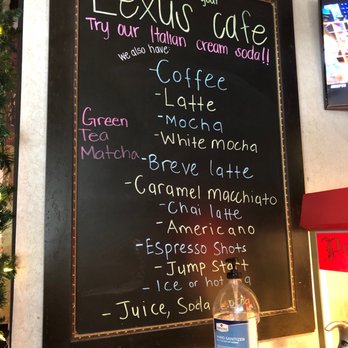 your
Lexus cafe
Try our Italian cream soda!!
we also have:
-Coffee
-Latte
-Mocha
-White mocha
Green
Tea
Matcha
-Breve latte
-Caramel macchiato
-Chai latte
-Americano
-Espresso Shots
-Jump Start
-Ice or hot
-Juice, Soda
HAND SANITIZER